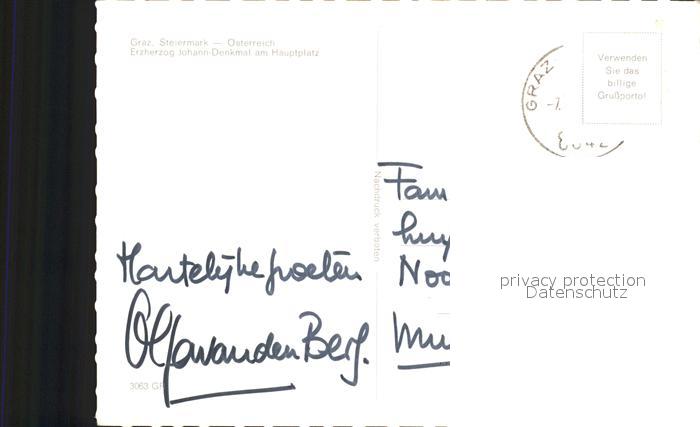 Graz, Steiermark — Österreich
Erzherzog Johann-Denkmal am Hauptplatz
GRAZ
-7.
Verwenden
Sie das
billige
Grußporto!
Nachdruck verboten
Hartelijke groeten
Olga van den Berg.
Fam
Noo
privacy protection
Datenschutz
3063 GR